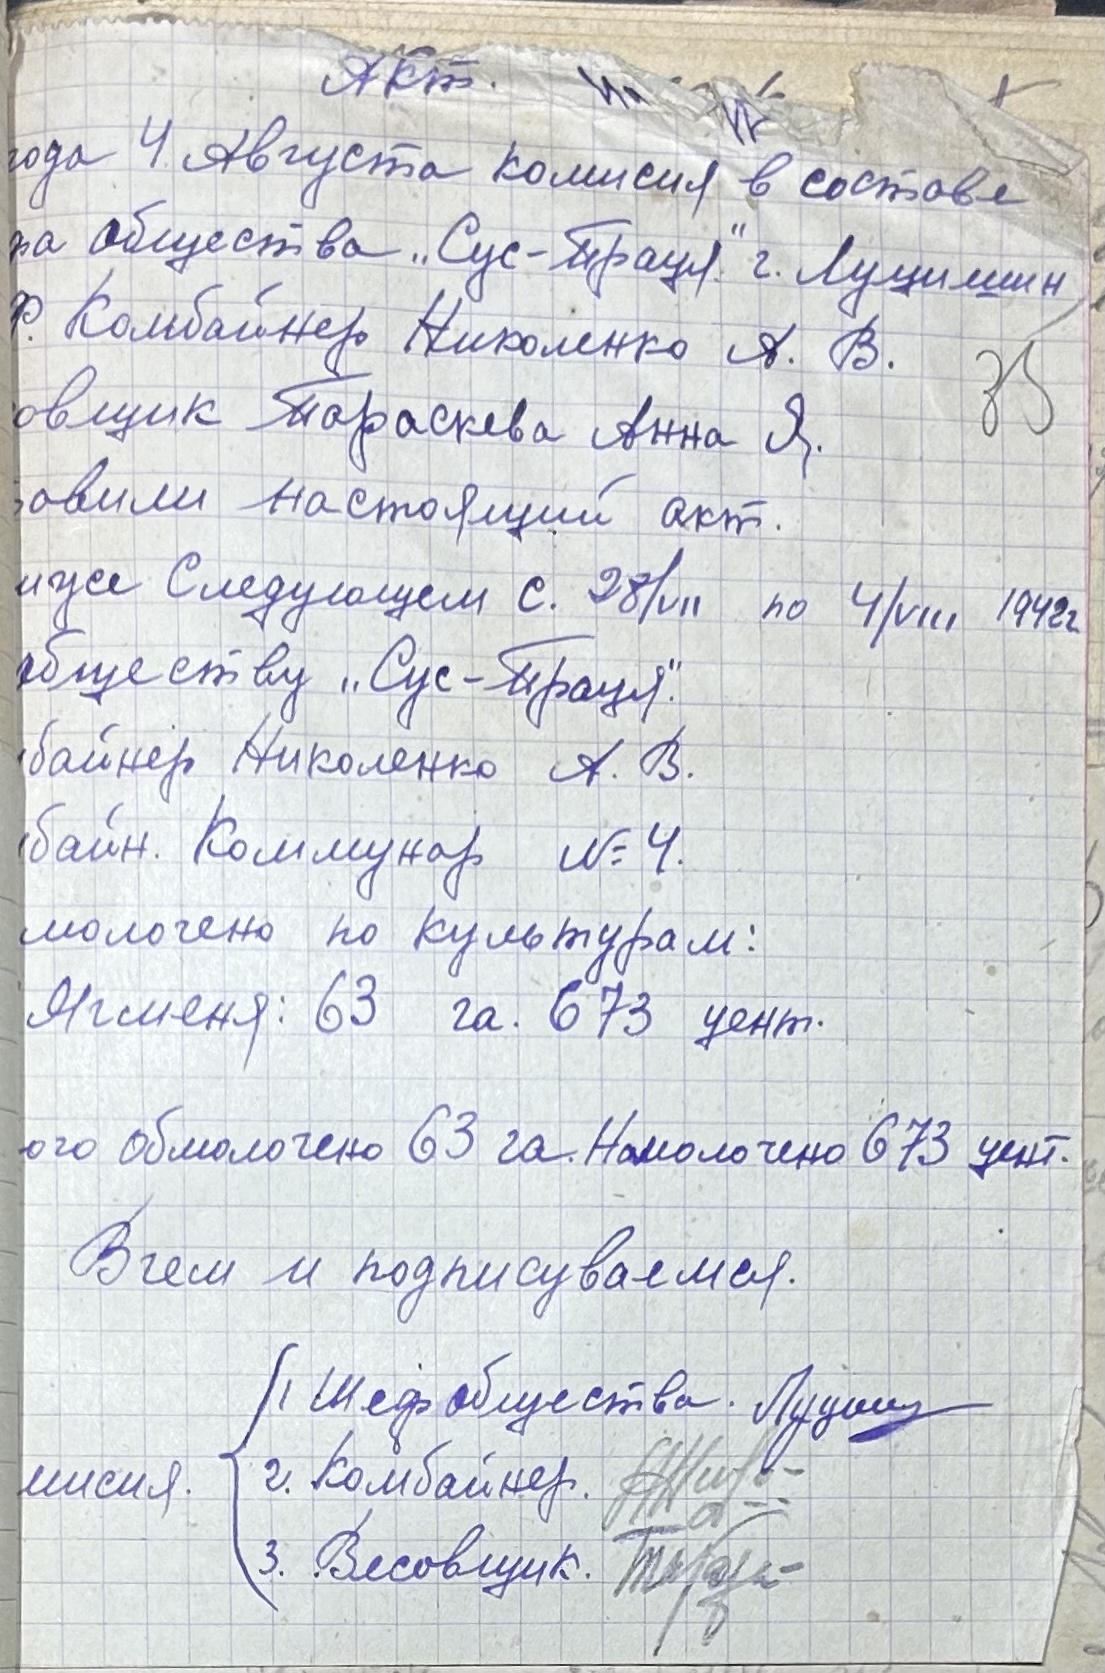 Акт.
года 4 Августа комисия в составе
фа общества „Сус-Праця" г. Луцишин
Ф. Комбайнер Николенко А. В.
35
овщик Тараскева Анна Я.
овили настоящий акт.
иже Следующем с. 28/VII по 4/VIII 1942г
обществу „Сус-Праця".
байнер Николенко А. В.
байн. Коммунар № 4.
молочено по культурам:
Ячменя: 63 га. 673 цент.
ого обмолочено 63 га. Намолочено 673 цент.
В чем и подписуваемся.
1 Шеф общества.
мисия. 2. Комбайнер.
3. Весовщик.